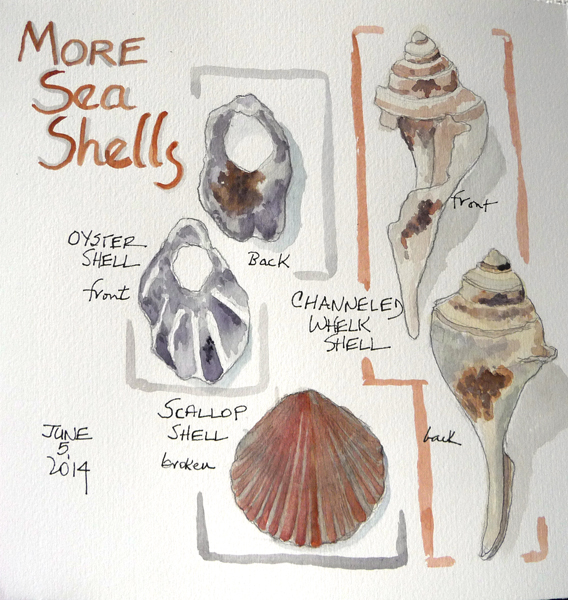 MORE
Sea
Shells
OYSTER
SHELL
front
Back
CHANNELED
WHELK
SHELL
front
back
SCALLOP
SHELL
broken
JUNE
5
2014